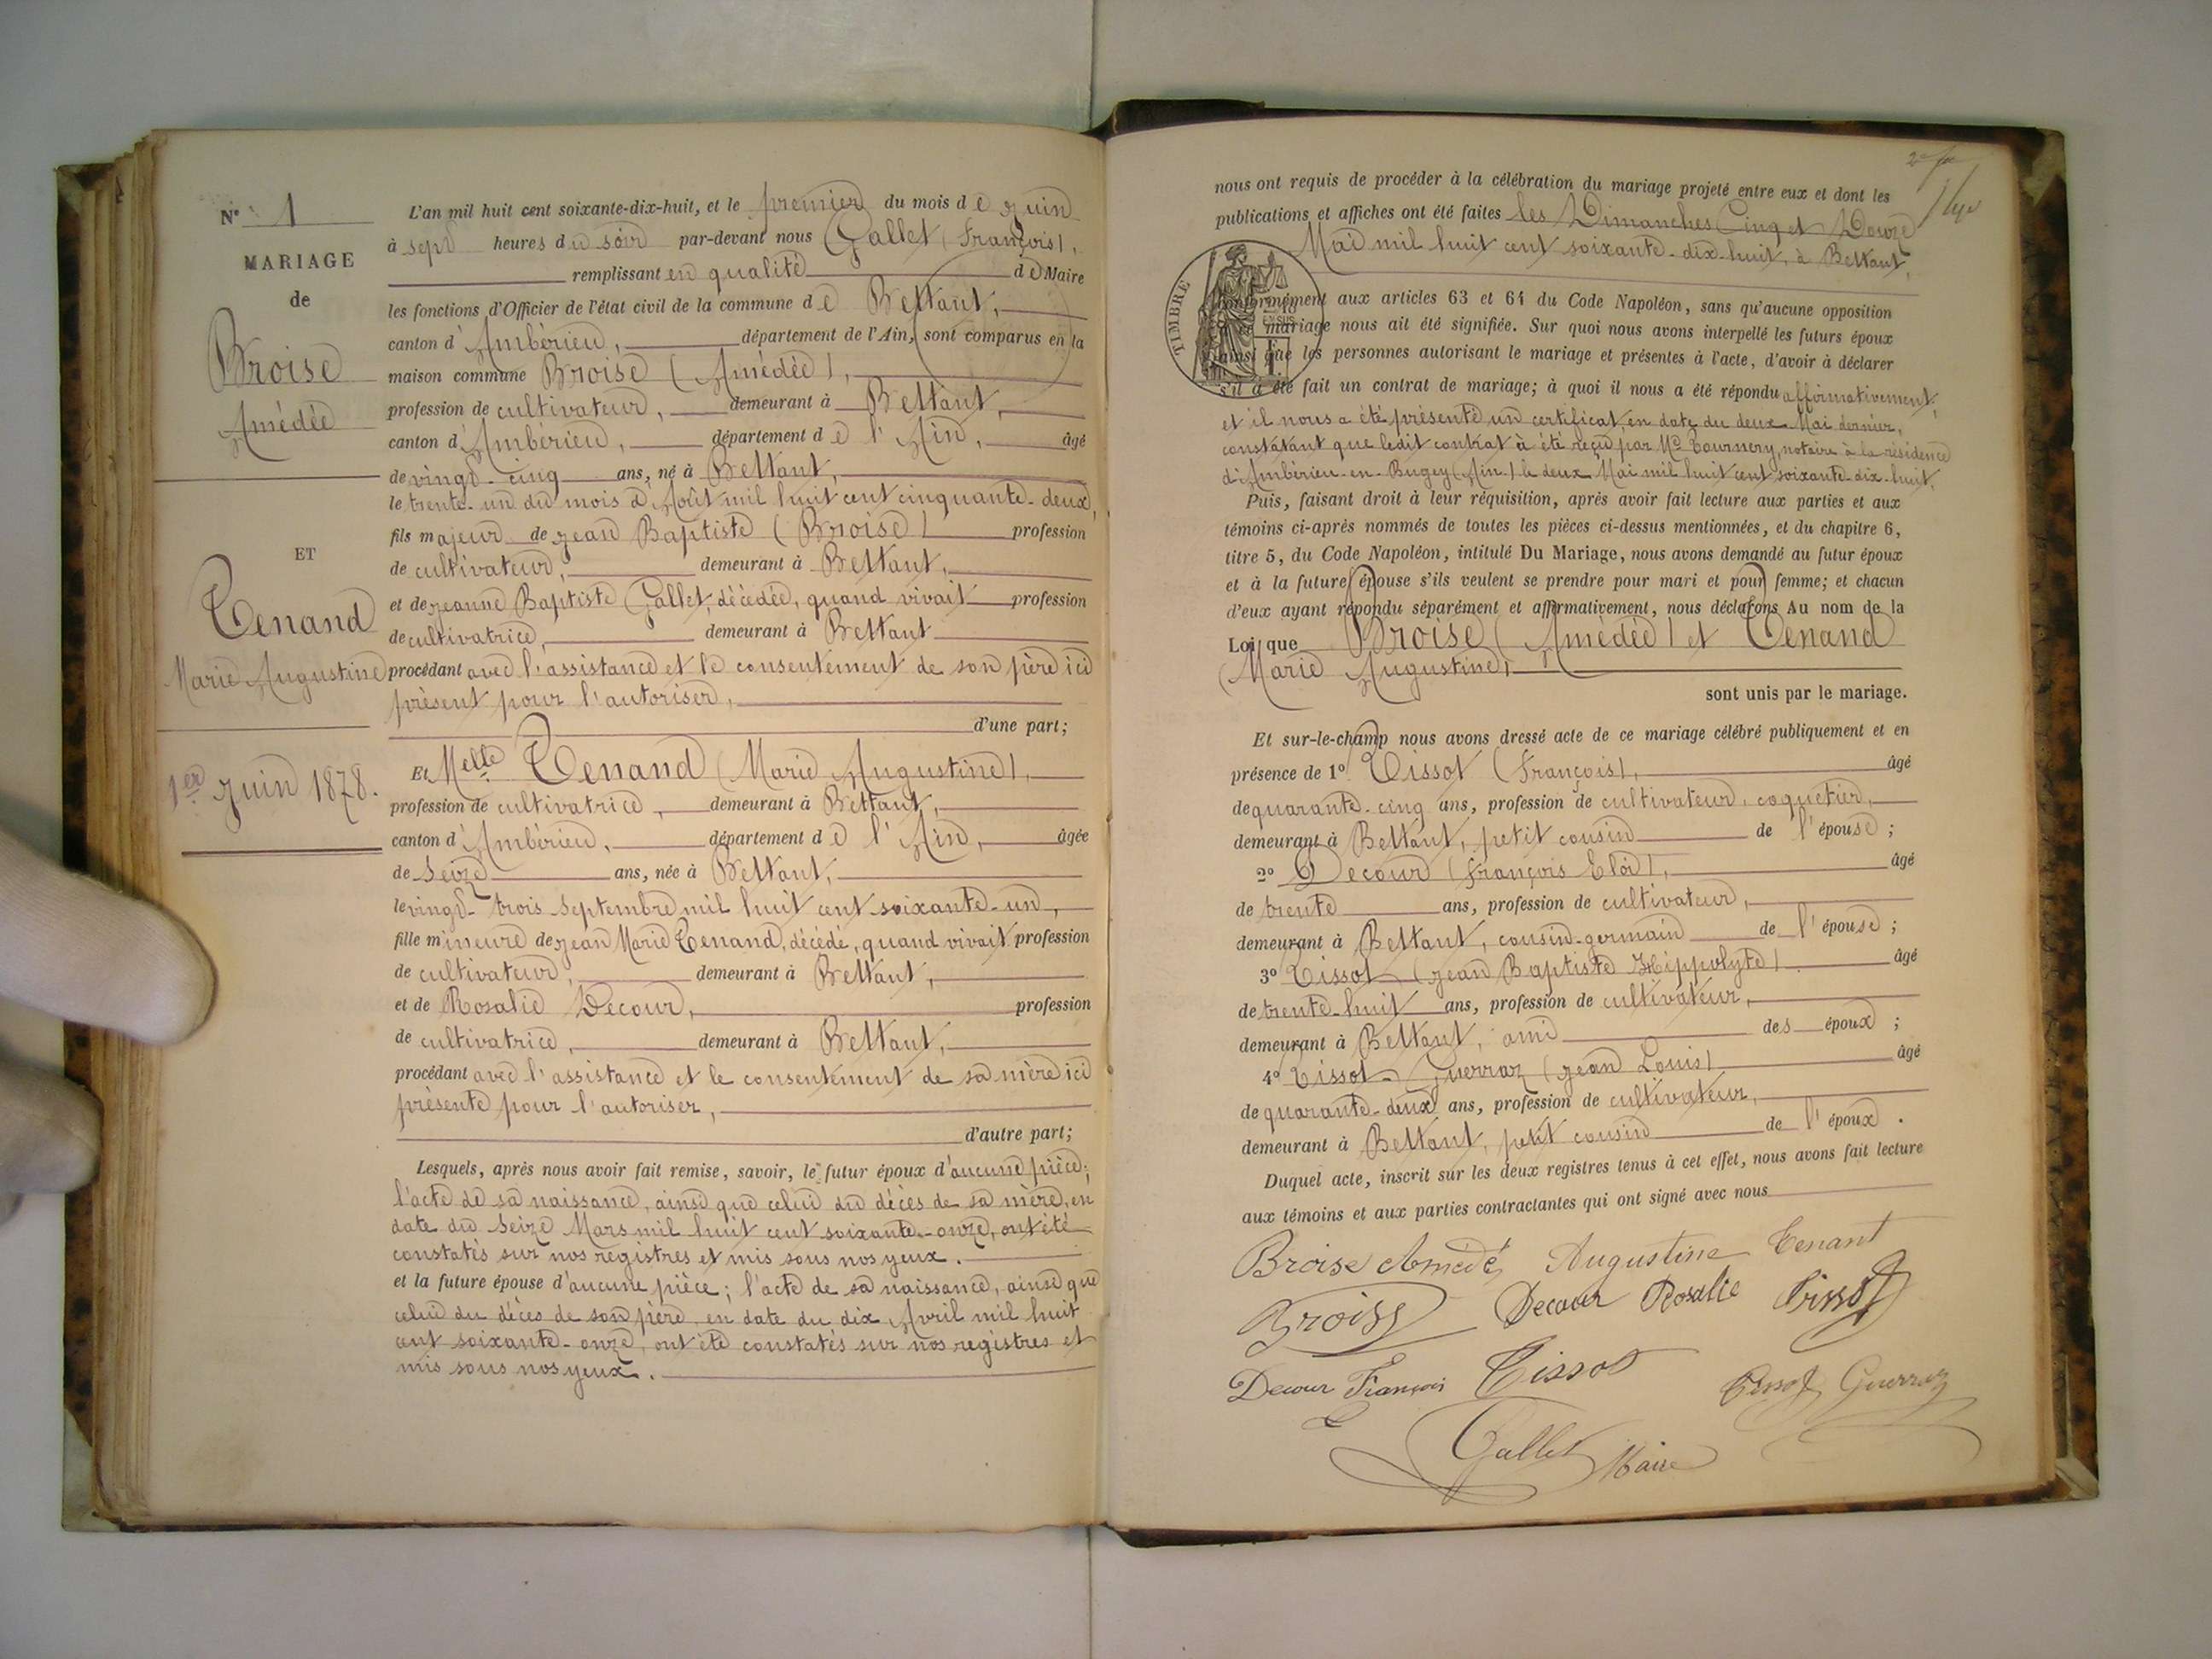 N° 1
MARIAGE
de
Broise
Amédée
ET
Tenand
Marie Augustine
1er Juin 1878.
L'an mil huit cent soixante-dix-huit, et le premier du mois de Juin
à sept heures du soir par-devant nous Gallet (François),
remplissant en qualité de Maire
les fonctions d'Officier de l'état civil de la commune de Bettant,
canton d'Ambérieu, département de l'Ain, sont comparus en la
maison commune Broise (Amédée),
profession de cultivateur, demeurant à Bettant,
canton d'Ambérieu, département de l'Ain, âgé
de vingt-cinq ans, né à Bettant,
le trente-un du mois d'Août mil huit cent cinquante-deux,
fils majeur de Jean Baptiste (Broise) profession
de cultivateur, demeurant à Bettant,
et de Jeanne Baptiste Gallet, décédée, quand vivait profession
de cultivatrice, demeurant à Bettant
procédant avec l'assistance et le consentement de son père ici
présent pour l'autoriser,
d'une part;
Et Melle Tenand (Marie Augustine),
profession de cultivatrice, demeurant à Bettant,
canton d'Ambérieu, département de l'Ain, âgée
de Seize ans, née à Bettant,
le vingt-trois Septembre mil huit cent soixante-un,
fille mineure de Jean Marie Tenand, décédé, quand vivait profession
de cultivateur, demeurant à Bettant,
et de Rosalie Decour, profession
de cultivatrice, demeurant à Bettant,
procédant avec l'assistance et le consentement de sa mère ici
présente pour l'autoriser,
d'autre part;
Lesquels, après nous avoir fait remise, savoir, le futur époux d'aucune pièce;
l'acte de sa naissance, ainsi que celui du décès de sa mère, en
date du Seize Mars mil huit cent soixante-onze, ont été
constatés sur nos registres et mis sous nos yeux.
et la future épouse d'aucune pièce; l'acte de sa naissance, ainsi que
celui du décès de son père en date du dix Avril mil huit
cent soixante-onze, ont été constatés sur nos registres et
mis sous nos yeux.
nous ont requis de procéder à la célébration du mariage projeté entre eux et dont les
publications et affiches ont été faites les Dimanches Cinq et Douze
Mai mil huit cent soixante-dix-huit, à Bettant,
TIMBRE
conformément aux articles 63 et 64 du Code Napoléon, sans qu'aucune opposition
mariage nous ait été signifiée. Sur quoi nous avons interpellé les futurs époux
ainsi que les personnes autorisant le mariage et présentes à l'acte, d'avoir à déclarer
s'il a été fait un contrat de mariage; à quoi il nous a été répondu affirmativement,
et il nous a été présenté un certificat, en date du deux Mai dernier,
constatant que ledit contrat à été reçu par Me Tournery, notaire à la résidence
d'Ambérieu-en-Bugey (Ain) le deux Mai mil huit cent soixante-dix-huit.
Puis, faisant droit à leur réquisition, après avoir fait lecture aux parties et aux
témoins ci-après nommés de toutes les pièces ci-dessus mentionnées, et du chapitre 6,
titre 5, du Code Napoléon, intitulé Du Mariage, nous avons demandé au futur époux
et à la future épouse s'ils veulent se prendre pour mari et pour femme; et chacun
d'eux ayant répondu séparément et affirmativement, nous déclarons Au nom de la
Loi, que Broise (Amédée) et Tenand
(Marie Augustine),
sont unis par le mariage.
Et sur-le-champ nous avons dressé acte de ce mariage célébré publiquement et en
présence de 1° Tissot (François), âgé
de quarante-cinq ans, profession de cultivateur, coquetier,
demeurant à Bettant, petit cousin de l'épouse;
2° Decour (François Eloi), âgé
de trente ans, profession de cultivateur,
demeurant à Bettant, cousin-germain de l'épouse;
3° Tissot (Jean Baptiste Hippolyte) âgé
de trente-huit ans, profession de cultivateur,
demeurant à Bettant, ami des époux;
4° Tissot-Guerraz (Jean Louis) âgé
de quarante-deux ans, profession de cultivateur,
demeurant à Bettant, petit cousin de l'époux.
Duquel acte, inscrit sur les deux registres tenus à cet effet, nous avons fait lecture
aux témoins et aux parties contractantes qui ont signé avec nous
Broise Amédé Augustine Tenant
Broise Decour Rosalie Tissot
Decour François Tissot Tissot Guerraz
Gallet Maire